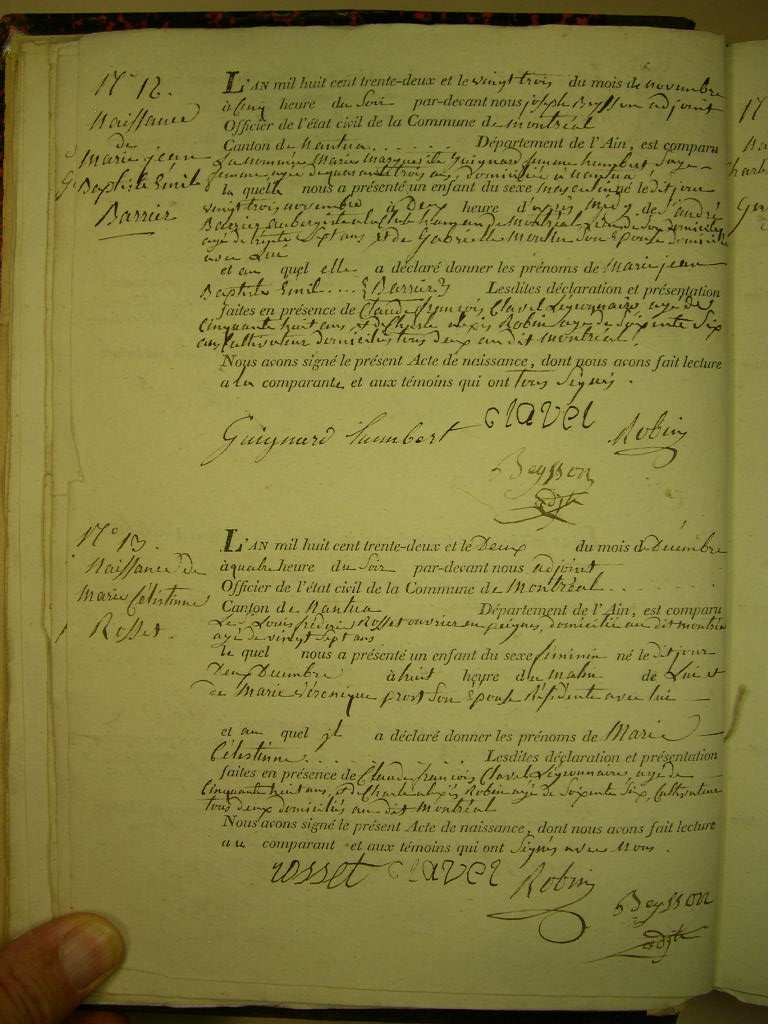 N° 12.
Naissance
de
Marie jean
Baptiste Emile
Barrier
L'AN mil huit cent trente-deux et le vingt trois du mois de novembre
à cinq heure du Soir par-devant nous joseph Beysson adjoint
Officier de l'état civil de la Commune de montréal
Canton de Nantua . . . . . Département de l'Ain, est comparu
La nommée Marie Marguerite Guignard femme humbert Sage-
femme, agée de quarante trois ans, domiciliée à nantua
la quelle nous a présenté un enfant du sexe masculin né le dit jour
vingt trois novembre à Deux heure d'après midy de André
Barrier Aubergiste
agé de trente Sept ans et de Gabrielle Son Epouse domiciliée
avec Lui
et au quel elle a déclaré donner les prénoms de Marie jean
Baptiste Emil . . . . (Barrier) Lesdites déclaration et présentation
faites en présence de Claude françois Clavel Légionnaire, agé de
cinquante huit ans et d Charle alexis Robin agé de Soixente Six
ans Cultivateur domiciliés tous deux au dit Montréal
Nous avons signé le présent Acte de naissance, dont nous avons fait lecture
a la comparante et aux témoins qui ont tous Signés.
Guignard humbert clavel Robin
Beysson
adjt
N° 13.
Naissance de
Marie Célistinne
Rosset.
L'AN mil huit cent trente-deux et le Deux du mois de Décembre
à quatre heure du Soir par-devant nous adjoint
Officier de l'état civil de la Commune de Montréal
Canton de Nantua Département de l'Ain, est comparu
Le Louis fréderic Rosset ouvrier en peignes, domicilié au dit montréal
agé de vingt Sept ans
le quel nous a présenté un enfant du sexe féminin né le dit jour
Deux Décembre à huit heure du matin de Lui et
de Marie Véronique prost Son Epouse Résidente avec lui
et au quel il a déclaré donner les prénoms de Marie
Célistinne . . . . Lesdites déclaration et présentation
faites en présence de Claude francois Clavel Légionnaire, agé de
Cinquante huit ans, et de Charle alexis Robin agé de Soixente Six, Cultivateur
tous deux domiciliés au dit Montréal
Nous avons signé le présent Acte de naissance, dont nous avons fait lecture
au comparant et aux témoins qui ont Signés avec Nous.
rosset clavel Robin
Beysson
adjt